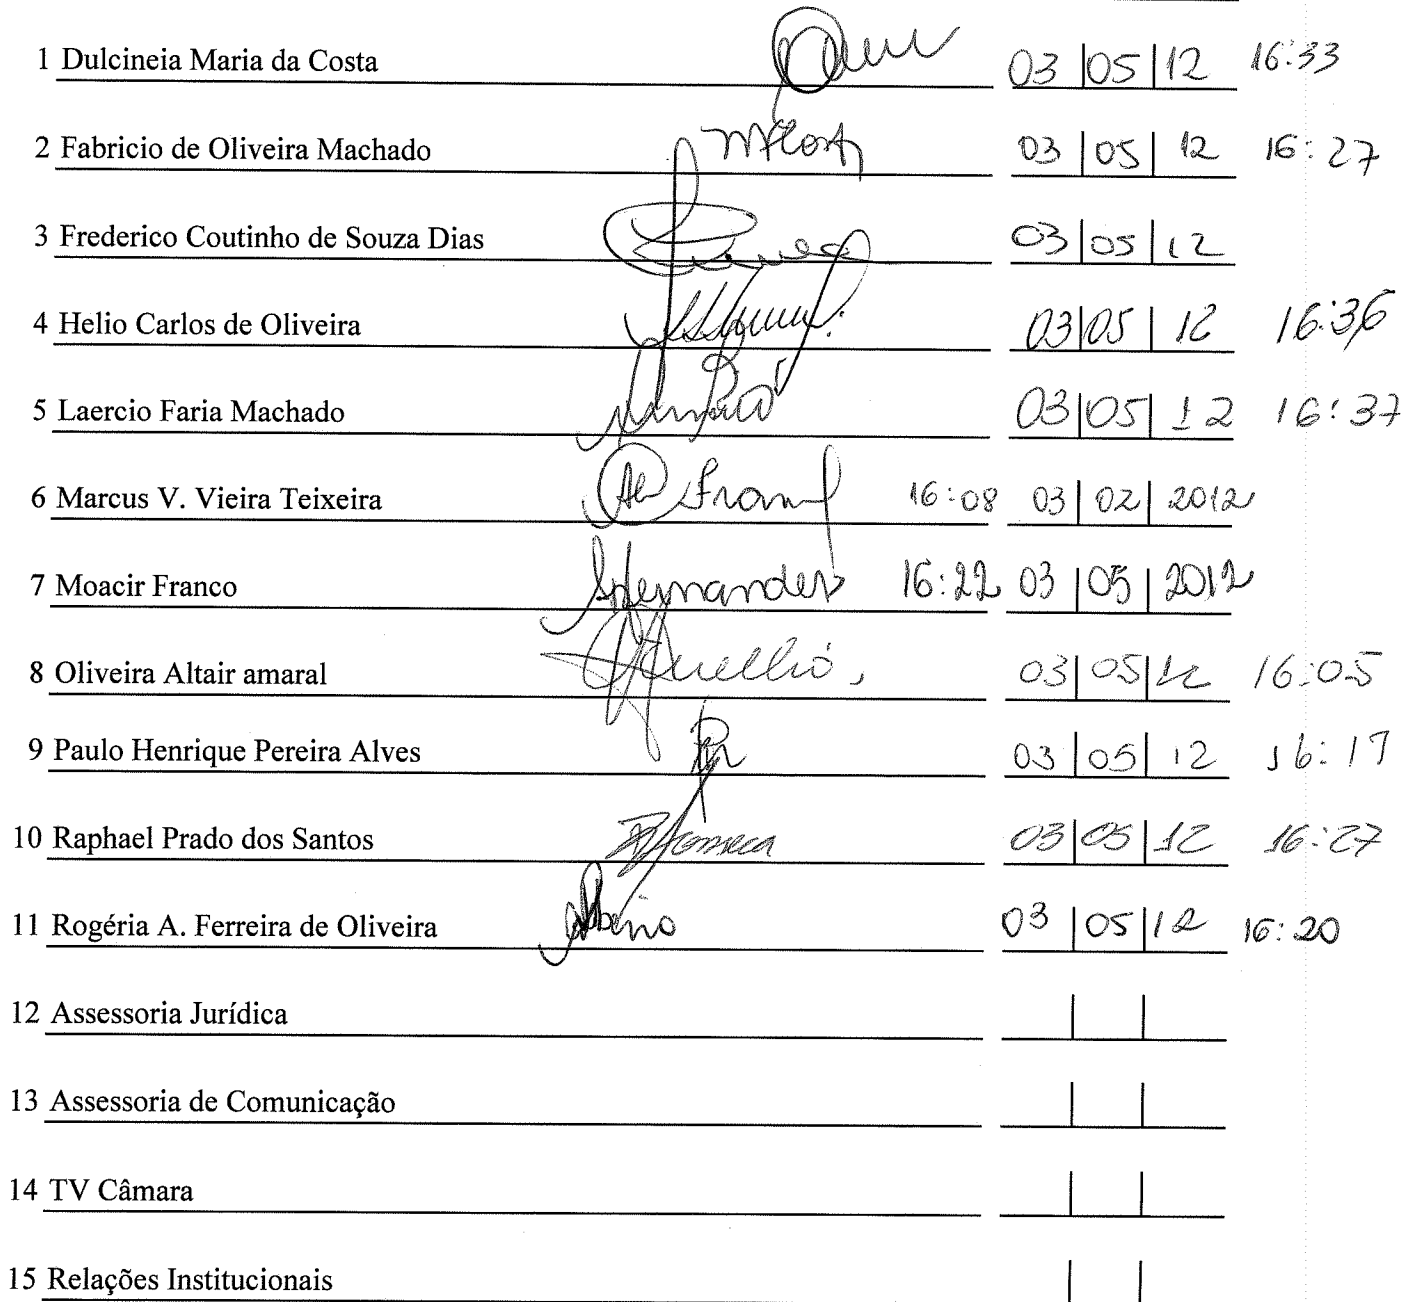 1 Dulcineia Maria da Costa 03 | 05 | 12 16:33
2 Fabricio de Oliveira Machado 03 | 05 | 12 16:27
3 Frederico Coutinho de Souza Dias 03 | 05 | 12
4 Helio Carlos de Oliveira 03 | 05 | 12 16:36
5 Laercio Faria Machado 03 | 05 | 12 16:37
6 Marcus V. Vieira Teixeira 16:08 03 | 02 | 2012
7 Moacir Franco Hernandes 16:22 03 | 05 | 2012
8 Oliveira Altair amaral 03 | 05 | 12 16:05
9 Paulo Henrique Pereira Alves 03 | 05 | 12 16:17
10 Raphael Prado dos Santos Fonseca 03 | 05 | 12 16:27
11 Rogéria A. Ferreira de Oliveira 03 | 05 | 12 16:20
12 Assessoria Jurídica
13 Assessoria de Comunicação
14 TV Câmara
15 Relações Institucionais